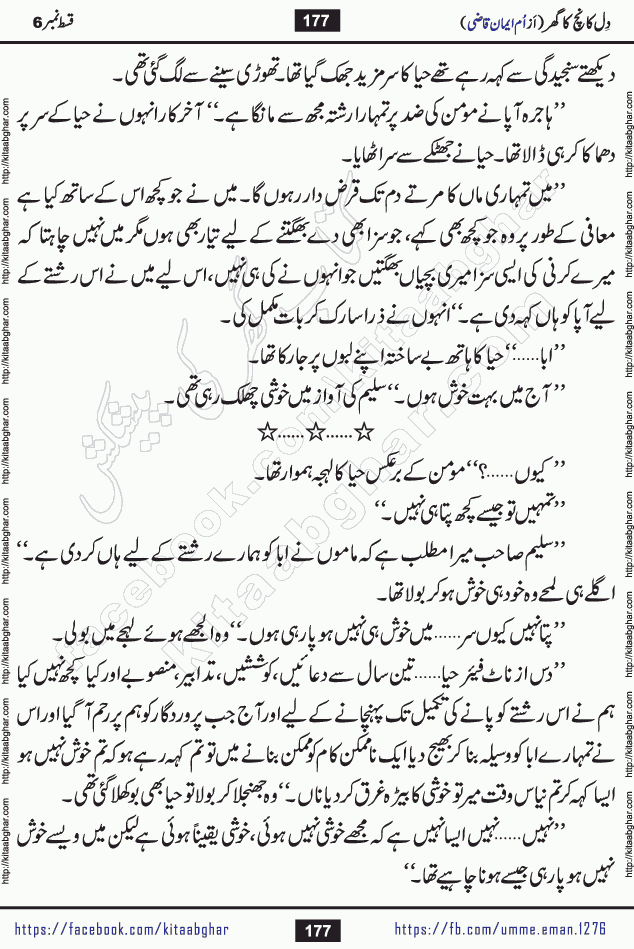 دِل کانچ کا گھر (از اُم ایمان قاضی) 177 قسط نمبر 6
دیکھتے سنجیدگی سے کہہ رہے تھے حیا کا سر مزید جھک گیا تھا۔ تھوڑی سینے سے لگ گئی تھی۔
”ہاجرہ آپا نے مؤمن کی ضد پر تمہارا رشتہ مجھ سے مانگا ہے۔“ آخر کار انہوں نے حیا کے سر پر
دھماکا کر ہی ڈالا تھا۔ حیا نے جھٹکے سے سر اٹھایا۔
”میں تمہاری ماں کا مرتے دم تک قرض دار رہوں گا۔ میں نے جو کچھ اس کے ساتھ کیا ہے
معافی کے طور پر وہ جو کچھ بھی کہے، جو سزا بھی دے بھگتنے کے لیے تیار بھی ہوں مگر میں نہیں چاہتا کہ
میرے کرنی کی ایسی سزا میری بچیاں بھگتیں جو انہوں نے کی ہی نہیں، اس لیے میں نے اس رشتے کے
لیے آپا کو ہاں کہہ دی ہے۔“ انہوں نے ذرا سا رک کر بات مکمل کی۔
”ابا......“ حیا کا ہاتھ بے ساختہ اپنے لبوں پر جا رکا تھا۔
”آج میں بہت خوش ہوں۔“ سلیم کی آواز میں خوشی چھلک رہی تھی۔
☆......☆......☆
”کیوں......؟“ مؤمن کے برعکس حیا کا لہجہ ہموار تھا۔
”تمہیں تو جیسے کچھ پتا ہی نہیں۔“
”سلیم صاحب میرا مطلب ہے کہ ماموں نے ابا کو ہمارے رشتے کے لیے ہاں کر دی ہے۔“
اگلے ہی لمحے وہ خود ہی خوش ہو کر بولا تھا۔
”پتا نہیں کیوں سر...... میں خوش ہی نہیں ہو پا رہی ہوں۔“ وہ الجھے ہوئے لہجے میں بولی۔
”دس از ناٹ فیئر حیا...... تین سال سے دعائیں، کوششیں، تدابیر، منصوبے اور کیا کچھ نہیں کیا
ہم نے اس رشتے کو پانے کی تکمیل تک پہنچانے کے لیے اور آج جب پروردگار کو ہم پر رحم آ گیا اور اس
نے تمہارے ابا کو وسیلہ بنا کر بھیج دیا ایک ناممکن کام کو ممکن بنانے میں تو تم کہہ رہے ہو کہ تم خوش نہیں ہو
ایسا کہہ کر تم نے اس وقت میر تو خوشی کا بیڑہ غرق کر دیا ناں۔“ وہ جھنجلا کر بولا تو حیا بھی بوکھلا گئی تھی۔
”نہیں...... نہیں ایسا نہیں ہے کہ مجھے خوشی نہیں ہوئی، خوشی یقیناً ہوئی ہے لیکن میں ویسے خوش
نہیں ہو پا رہی جیسے ہونا چاہیے تھا۔“
https://facebook.com/kitaabghar 177 https://fb.com/umme.eman.1276
http://kitaabghar.com
کتاب گھر کی پیشکش
facebook.com/kitaabghar
kitaabghar.com